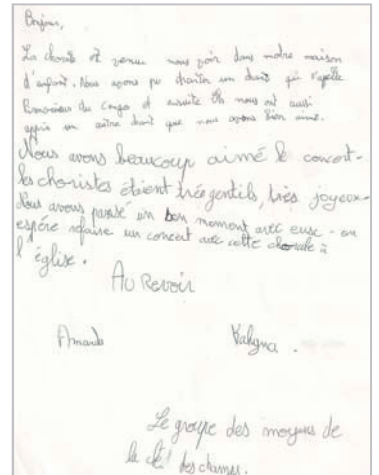 Bonjour,
La chorale est venue nous voir dans notre maison
d'enfant. Nous avons pu chanter un chant qui s'appelle
du Congo et ensuite ils nous ont aussi
appris un autre chant que nous avons bien aimé.
Nous avons beaucoup aimé le concert.
les choristes étaient très gentils, très joyeux.
Nous avons passé un bon moment avec eux - on
espére refaire un concert avec cette chorale à
l'église.
Au Revoir
Kalyna.
Le groupe des moyens de
la clé des champs.